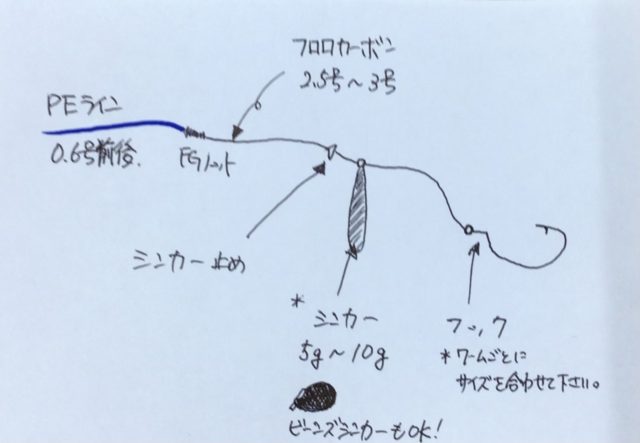 フロロカーボン
2.5号〜3号
PEライン
0.6号前後.
FGノット
シンカー止め
* シンカー
5g〜10g
フック
*ワームごとに
サイズを合わせて下さい。
ビーンズシンカーもOK!